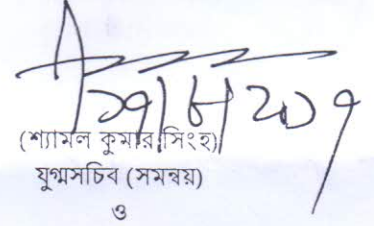 (শ্যামল কুমার সিংহ)
যুগ্মসচিব (সমন্বয়)
ও